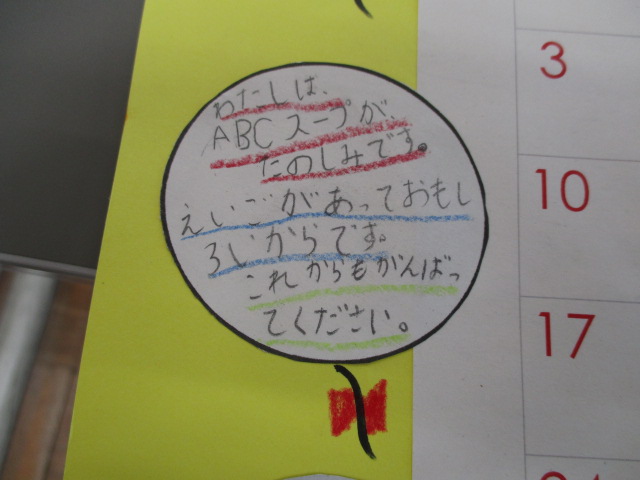 わたしは、
ABCスープが、
たのしみです。
えいごがあっておもし
ろいからです。
これからもがんばっ
てください。
3
10
17